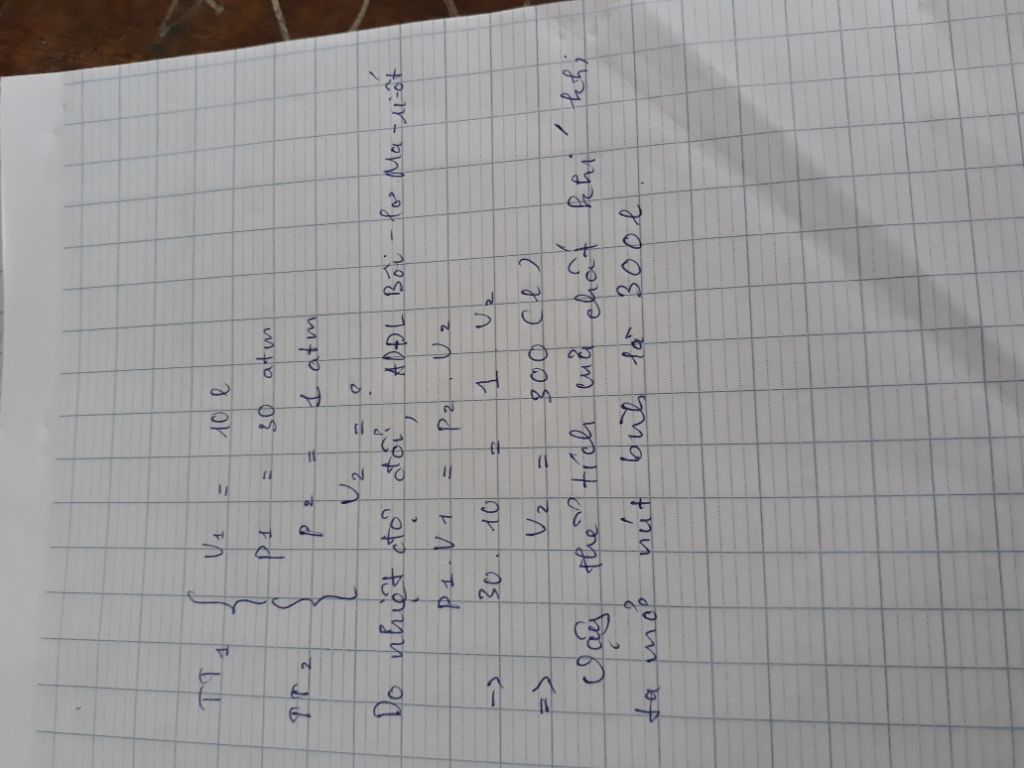 TT1 { V1 = 10 l
P1 = 30 atm
TT2 { P2 = 1 atm
V2 = ?
Do nhiệt độ đổi, ADĐL Bôi-lơ Ma-ri-ốt
P1.V1 = P2.V2
-> 30.10 = 1 V2
=> V2 = 300 (l)
Vậy thể tích của chất khí khi
ta mở nút bình là 300l.